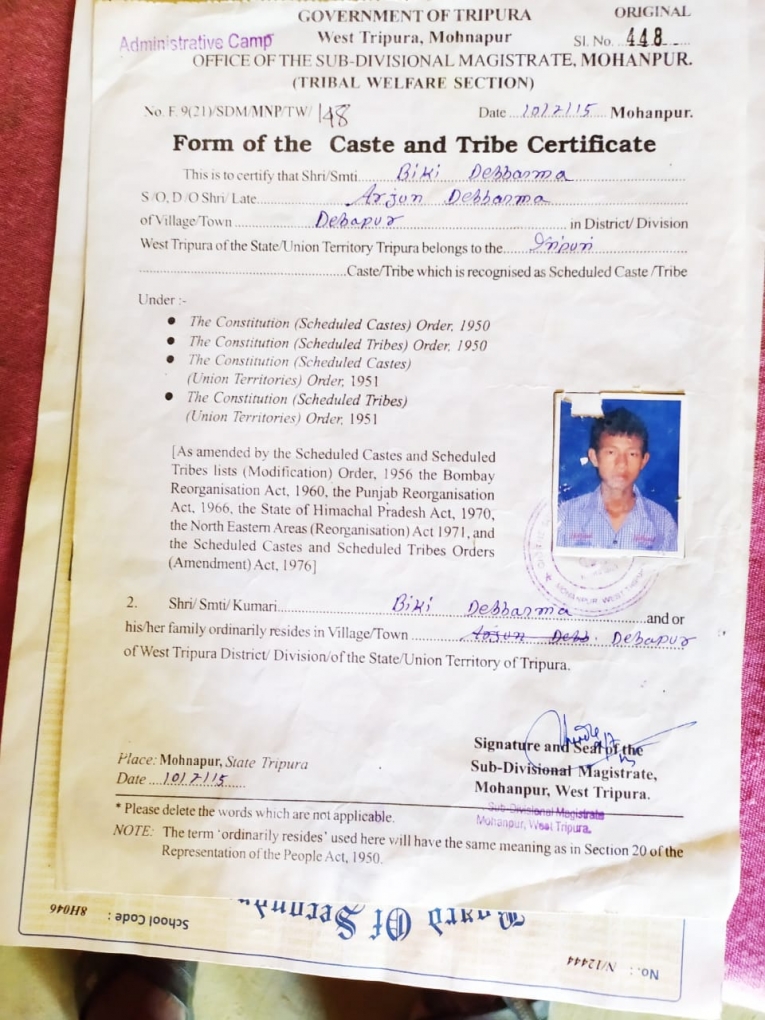 GOVERNMENT OF TRIPURA
ORIGINAL
Administrative Camp
West Tripura, Mohnapur
Sl. No. 448
OFFICE OF THE SUB-DIVISIONAL MAGISTRATE, MOHANPUR.
(TRIBAL WELFARE SECTION)
No. F. 9(21)/SDM/MNP/TW/ 148 Date 10/2/15 Mohanpur.
Form of the Caste and Tribe Certificate
This is to certify that Shri/Smti Biki Debbarma
S/O, D/O Shri/ Late Arjun Debbarma
of Village/Town Debapur in District/ Division
West Tripura of the State/Union Territory Tripura belongs to the Tripuri
Caste/Tribe which is recognised as Scheduled Caste /Tribe
Under :-
● The Constitution (Scheduled Castes) Order, 1950
● The Constitution (Scheduled Tribes) Order, 1950
● The Constitution (Scheduled Castes)
(Union Territories) Order, 1951
● The Constitution (Scheduled Tribes)
(Union Territories) Order, 1951
[As amended by the Scheduled Castes and Scheduled
Tribes lists (Modification) Order, 1956 the Bombay
Reorganisation Act, 1960, the Punjab Reorganisation
Act, 1966, the State of Himachal Pradesh Act, 1970,
the North Eastern Areas (Reorganisation) Act 1971, and
the Scheduled Castes and Scheduled Tribes Orders
(Amendment) Act, 1976]
2. Shri/ Smti/ Kumari Biki Debbarma and or
his/her family ordinarily resides in Village/Town Arjun Debb. Debapur
of West Tripura District/ Division/of the State/Union Territory of Tripura.
Signature and Seal of the
Sub-Divisional Magistrate,
Mohanpur, West Tripura.
Place: Mohnapur, State Tripura
Date 10/2/15
Sub-Divisional Magistrate
Mohanpur, West Tripura.
* Please delete the words which are not applicable.
NOTE: The term 'ordinarily resides' used here will have the same meaning as in Section 20 of the
Representation of the People Act, 1950.
School Code : 8H046
Board Of Secondary
No.: N/12444